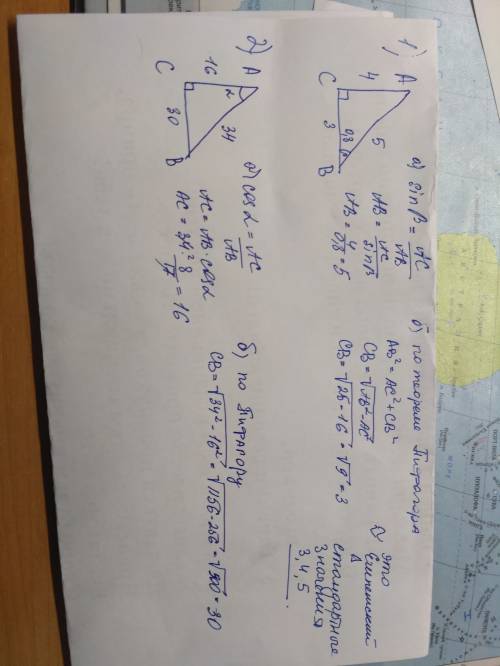 1)
A
4
5
C
3
0,8 β
B
а) sinβ = AC/AB
AB = AC/sinβ
AB = 4/0,8 = 5
б) по теореме Пифагора
AB² = AC² + CB²
CB = √AB² - AC²
CB = √25 - 16 = √9 = 3
это
Египетский
Δ
стандартные
значения
3, 4, 5
2)
A
16
α
34
C
30
B
а) cosα = AC/AB
AC = AB · cosα
AC = 34 · 8/17 = 16
б) по Пифагору
CB = √34² - 16² = √1156 - 256 = √900 = 30